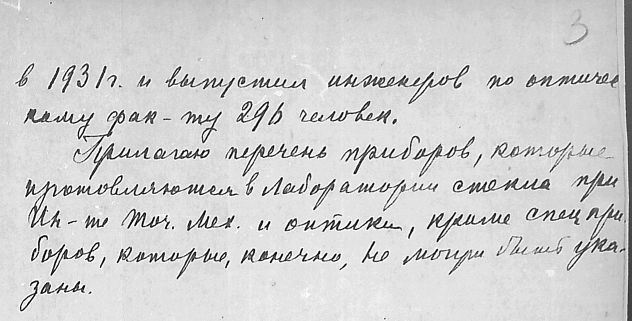 3
в 1931г. и выпустил инженеров по оптичес
кому фак-ту 296 человек.
Прилагаю перечень приборов, которые
изготовляются в Лаборатории стекла при
Ин-те Точ. Мех. и оптики, кроме спецпри
боров, которые, конечно, не могут быть ука-
заны.